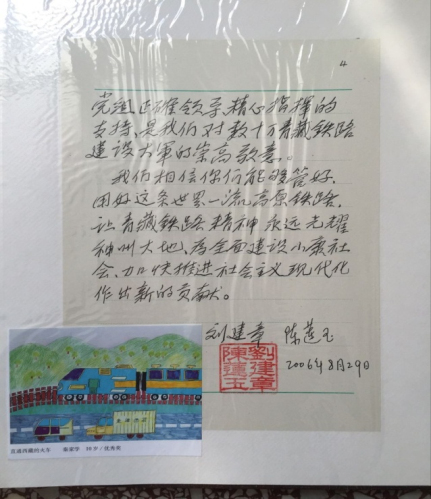 4
党组正确领导、精心指挥的
支持，是我们对数十万青藏铁路
建设大军的崇高敬意。
我们相信你们能够管好、
用好这条世界一流高原铁路，
让青藏铁路精神永远光耀
神州大地，为全面建设小康社
会、加快推进社会主义现代化
作出新的贡献。
刘建章 陈莲玉
2006年8月29日
劉建章
陳蓮玉
直通西藏的火车 10岁